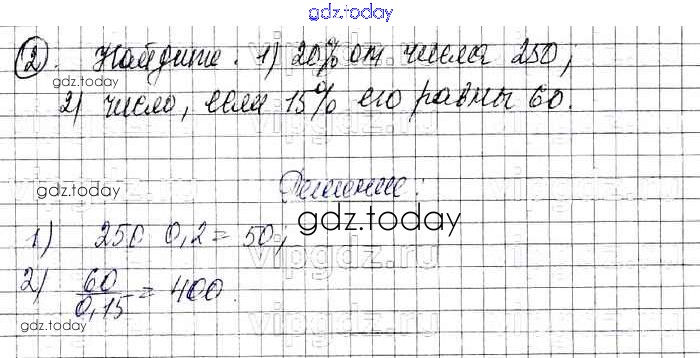 gdz.today
2. Найдите: 1) 20% от числа 250;
gdz.today
2) число, если 15% его равны 60.
vipgdz.ru
gdz.today
Решение:
gdz.today
1) 250 0,2 = 50;
vipgdz.ru
2) 60/0,15 = 400.
gdz.today
vipgdz.ru